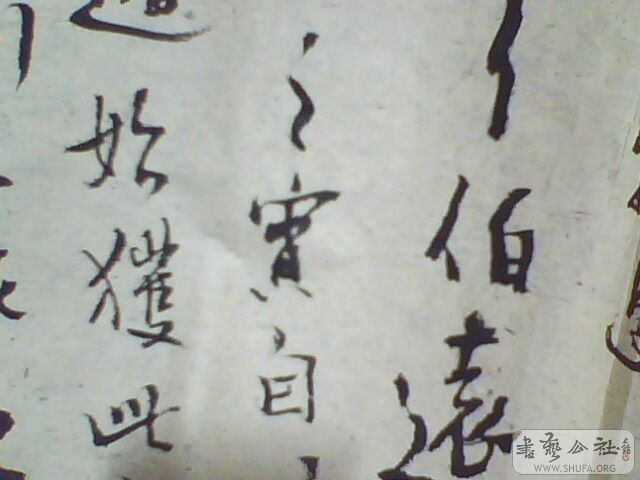 伯遠
之寶自
始獲此
書藝公社
WWW.SHUFA.ORG